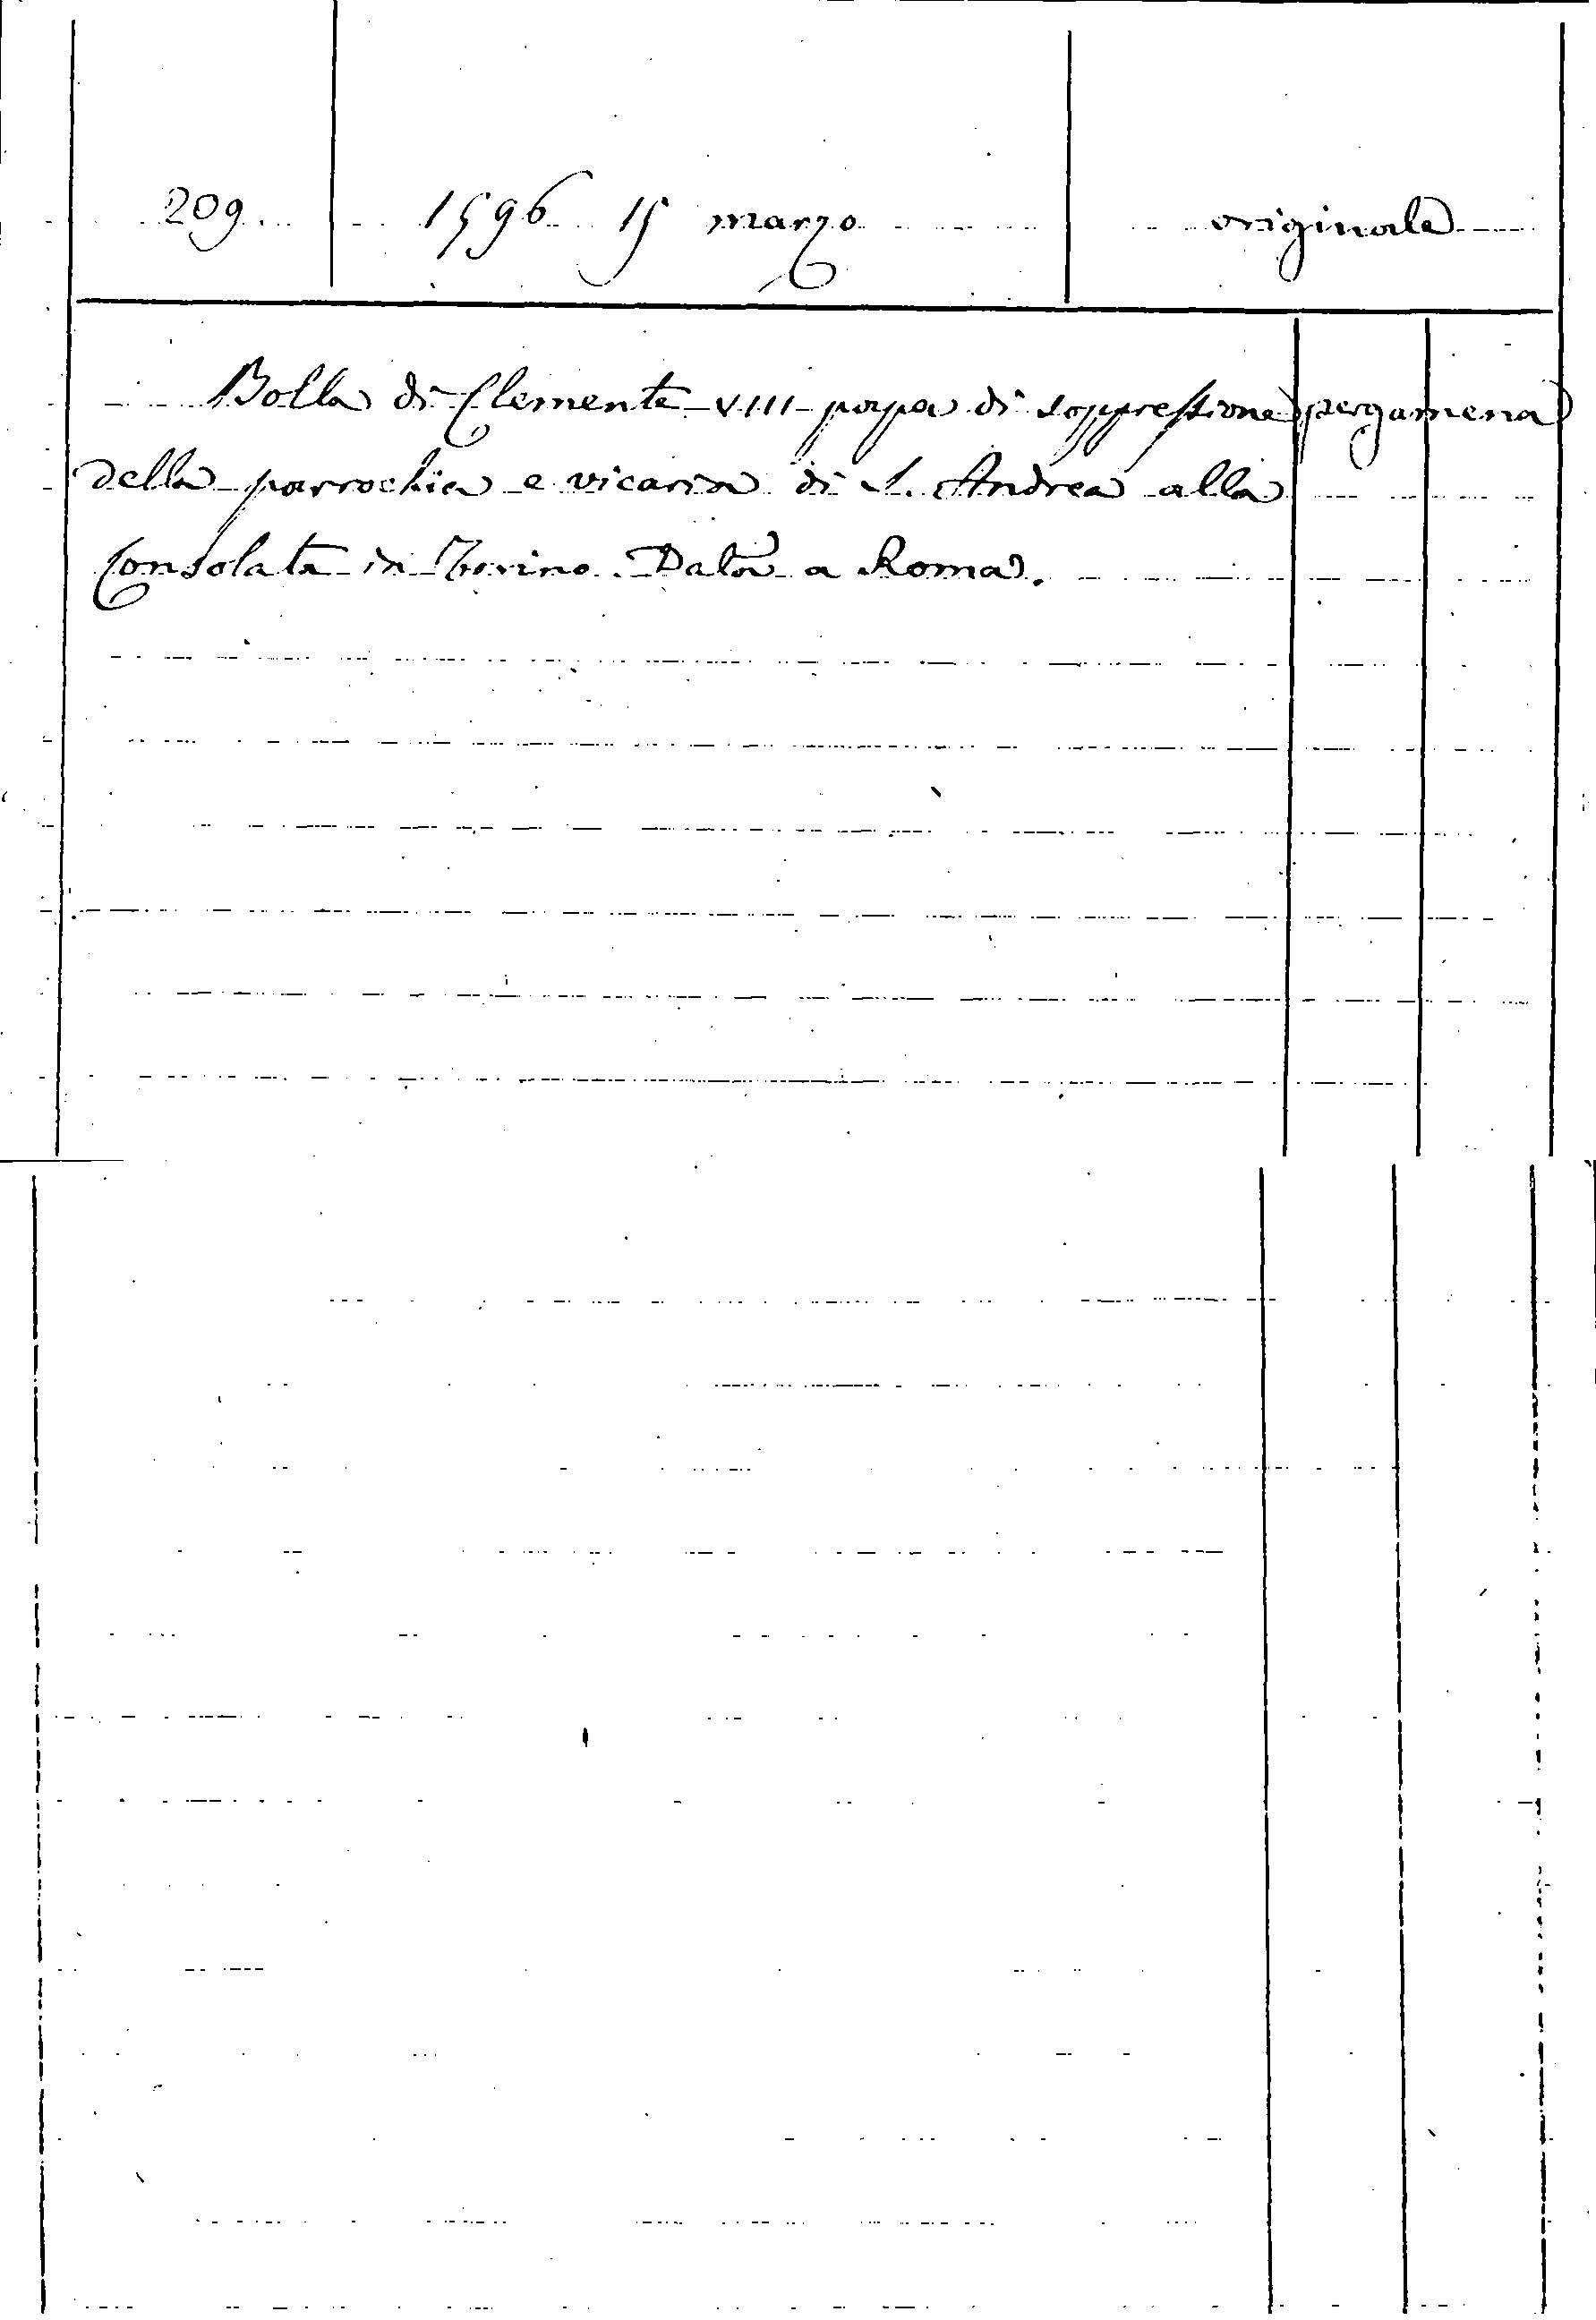 209 1596 15 marzo originale
Bolla di Clemente VIII papa di soppressione pergamena
della parrochia e vicaria di S. Andrea alla
Consolata in Torino. Data a Roma.